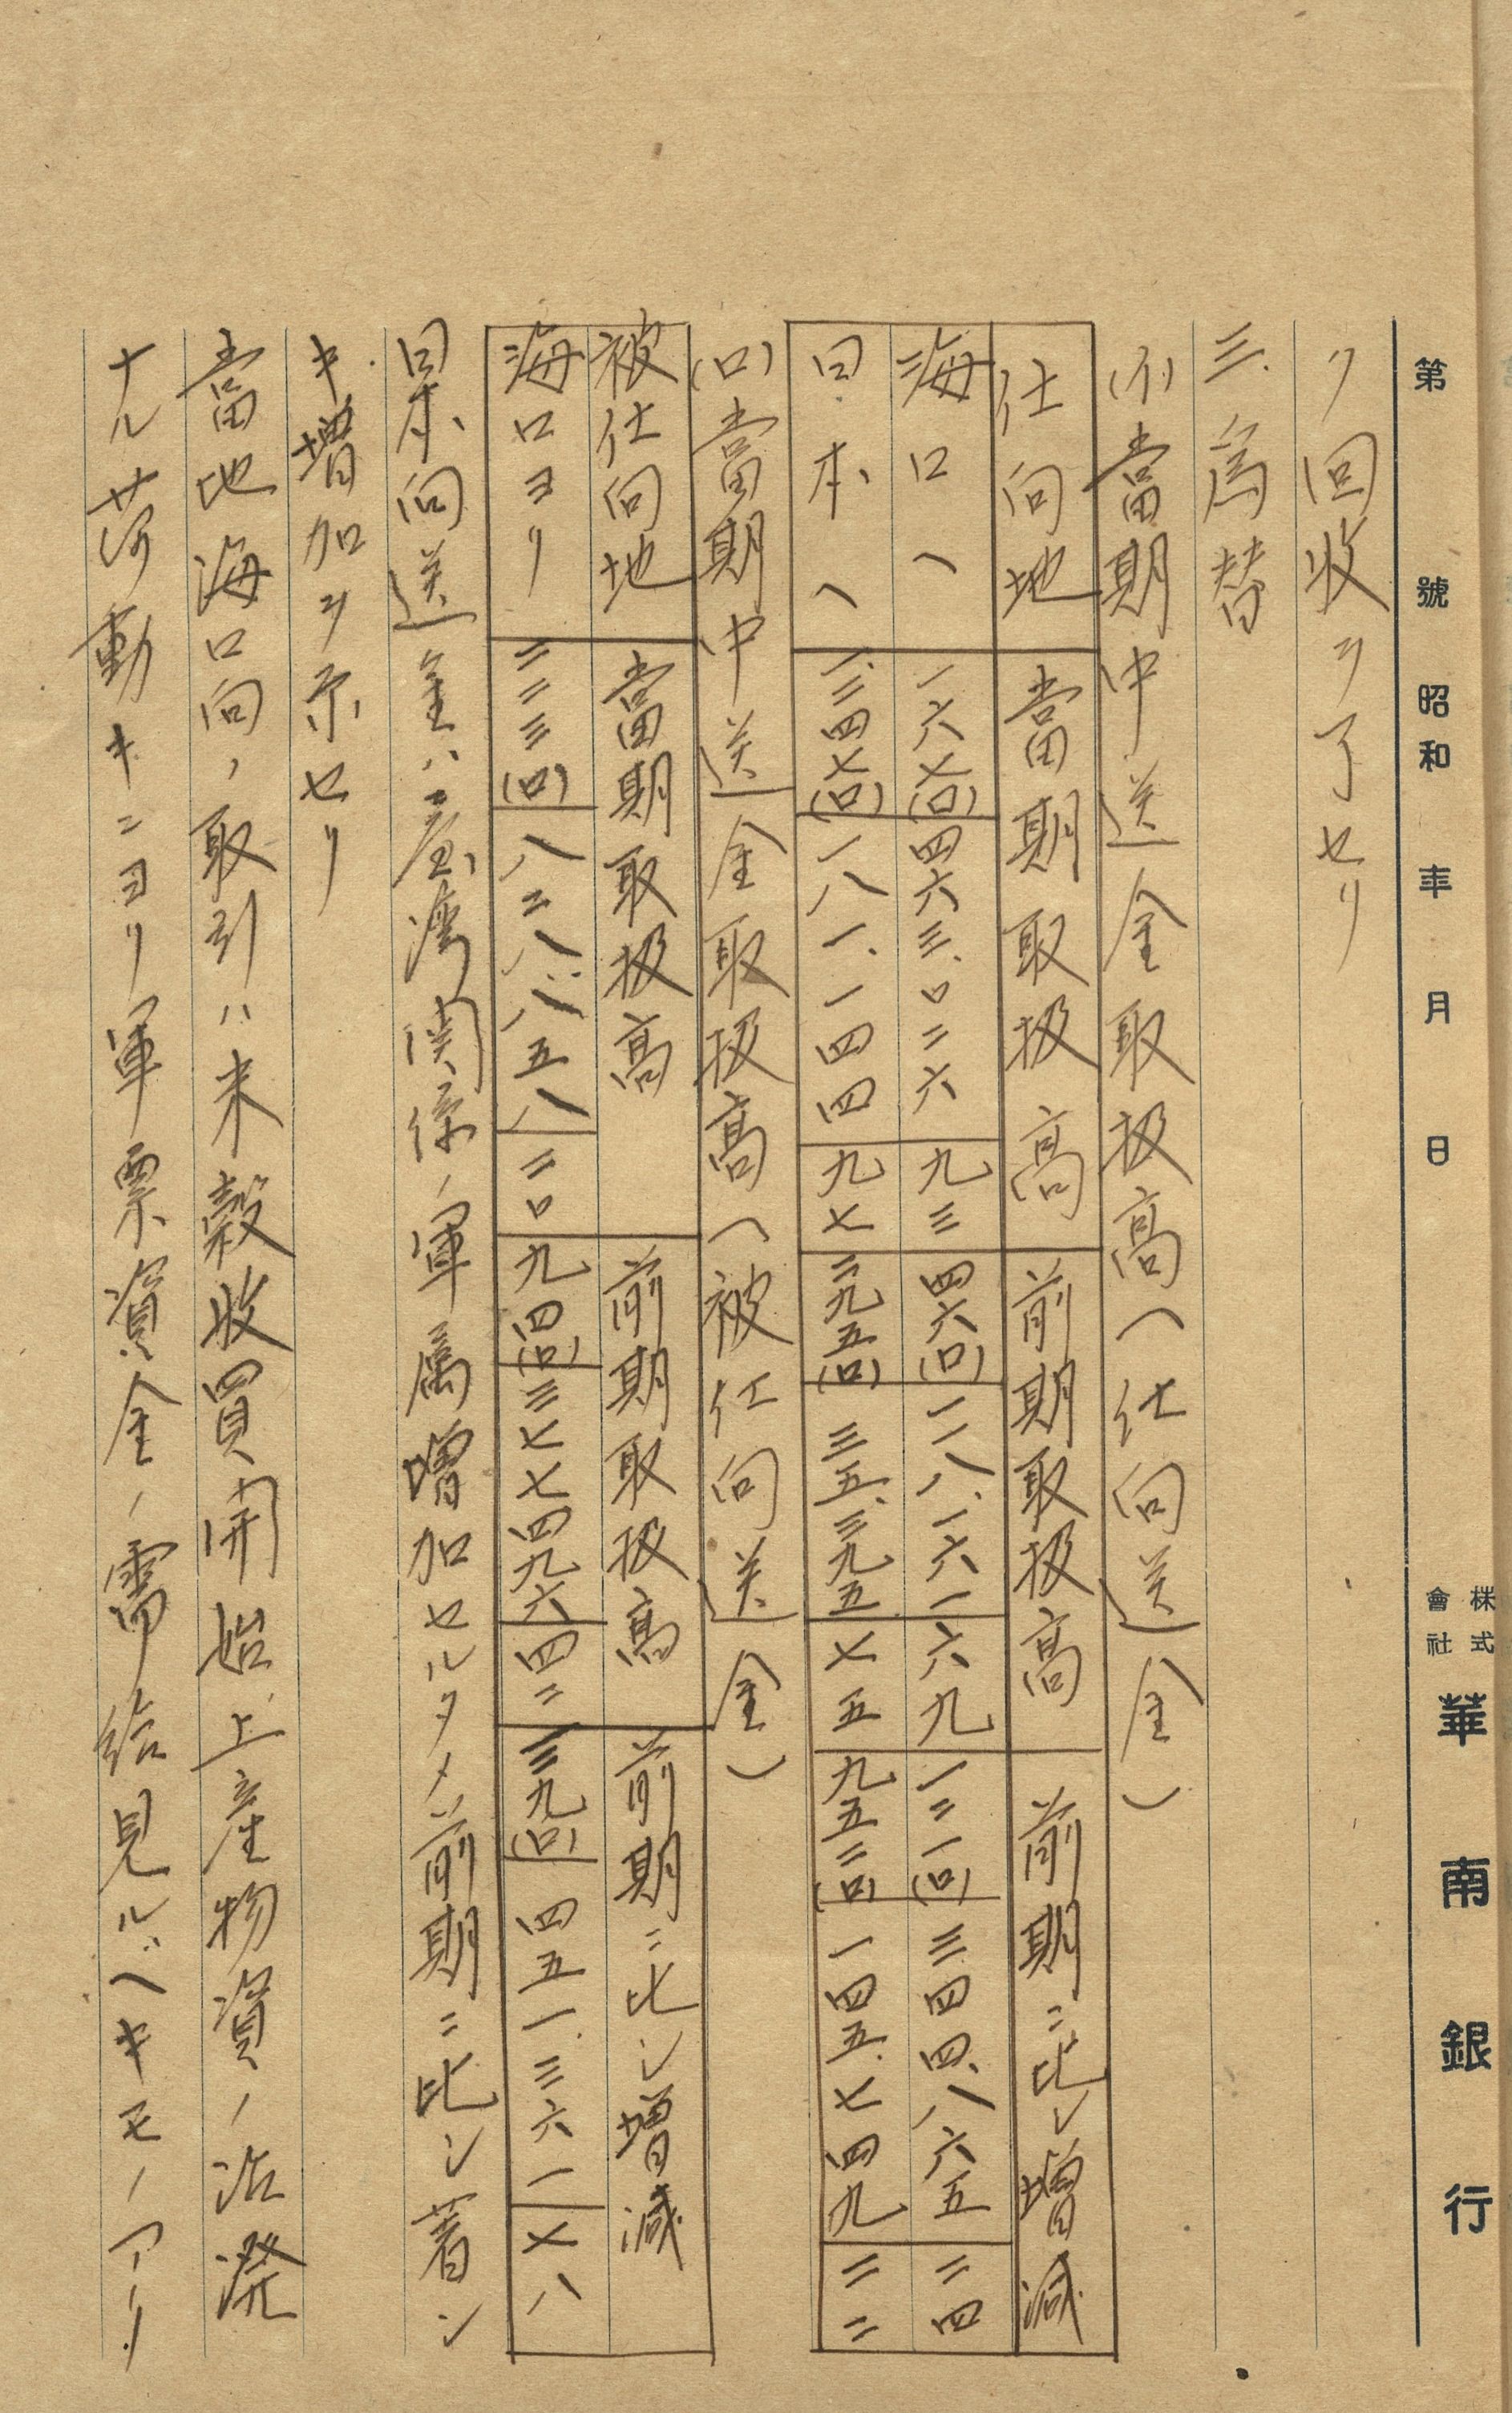 第 號 昭和 年 月 日
株式會社 華南銀行
リ回收ヲ了セリ
三.為替
(イ)當期中送金取扱高(仕向送金)
仕向地 當期取扱高 前期取扱高 前期ニ比シ增減
海口へ 一六七(口) 四六三、〇二六 九三 四六(口) 一一八、一六一 六九 一二一(口) 三四四、八六五 二四
日本へ 一、二四七(口) 一八一、一四四 九七 二九五(口) 三五、三九五 七五 九五二(口) 一四五、七四九 二二
(ロ)當期中送金取扱高(被仕向送金)
被仕向地 當期取扱高 前期取扱高 前期ニ比シ增減
海口ヨリ 二三三(口) 八二八、八五八 二〇 九四(口) 三七七四九六 四二 一三九(口) 四五一、三六一 七八
日本向送金ハ台灣関係ノ軍属増加セルタメ前期ニ比シ著シ
キ増加ヲ示セリ
當地海口向ノ取引ハ米穀收買開始上産物資ノ活潑
ナル荷動キニヨリ軍票資金ノ需給見ルベキモノアリ